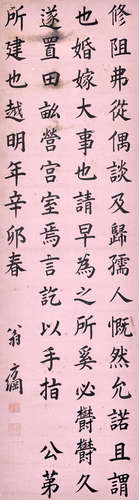 修阻弗從偶談及歸孺人慨然允諾且謂
也婚嫁大事也請早為之所奚必欝欝久
遂置田畝營宮室焉言訖以手指 公第
所建也越明年辛卯春
翁方綱